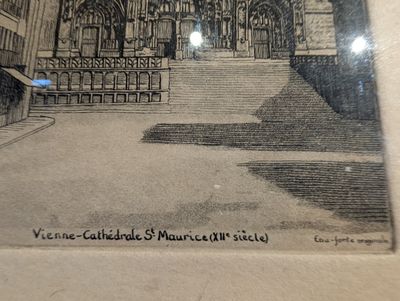 Vienne-Cathédrale St Maurice (XIIe siècle)
Eau-forte originale